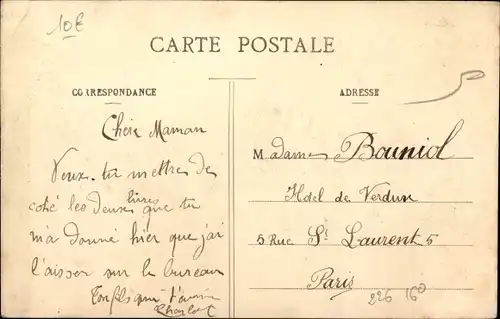 10€
CARTE POSTALE
CORRESPONDANCE
Chère Maman
Veux-tu mettre de
coté les deux livres que tu
m'a donné hier que j'ai
l'aisser sur le bureau
Ton fils qui t'aime
Charlot
ADRESSE
Madame Bouniol
Hotel de Verdun
5 Rue St Laurent 5
Paris
226 160